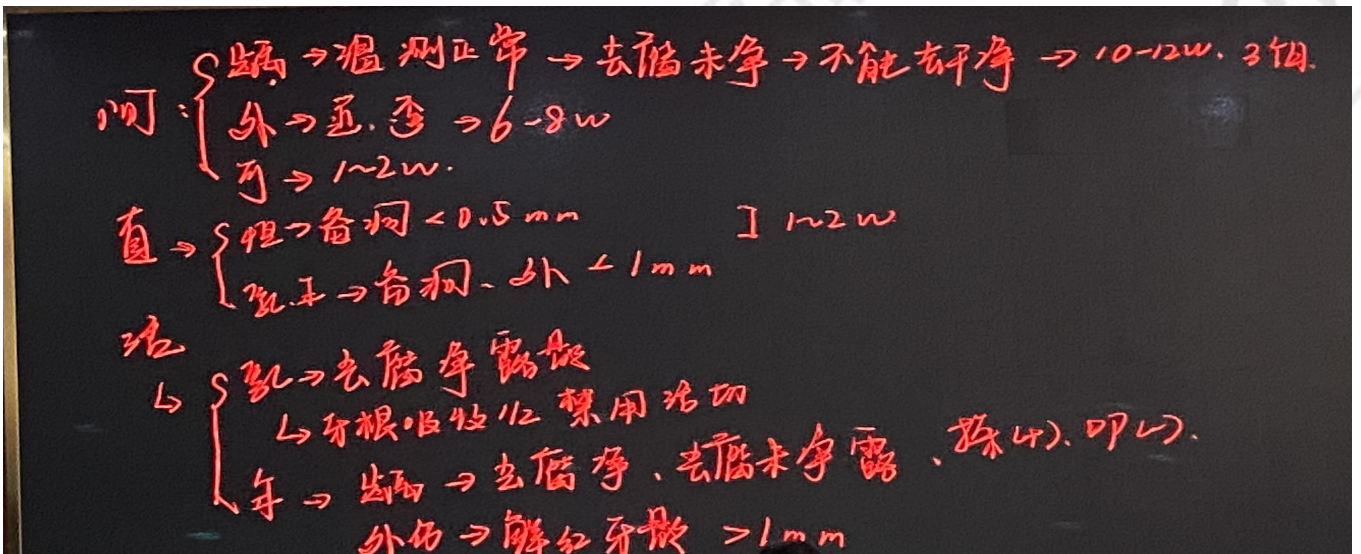 间: 龋 → 温测正常 → 去腐未净 → 不能去干净 → 10-12w. 3个月.
外 → 近. 否 → 6-8w
可 → 1~2w.
直 → 恒 → 备洞 < 0.5mm ] 1~2w
乳.年 → 备洞、外 < 1mm
活
↳ 乳 → 去腐净露髓
↳ 牙根吸收1/2 禁用活切
年 → 龋 → 去腐净、去腐未净露、探(+).叩(-).
外伤 → 鲜红牙髓 >1mm